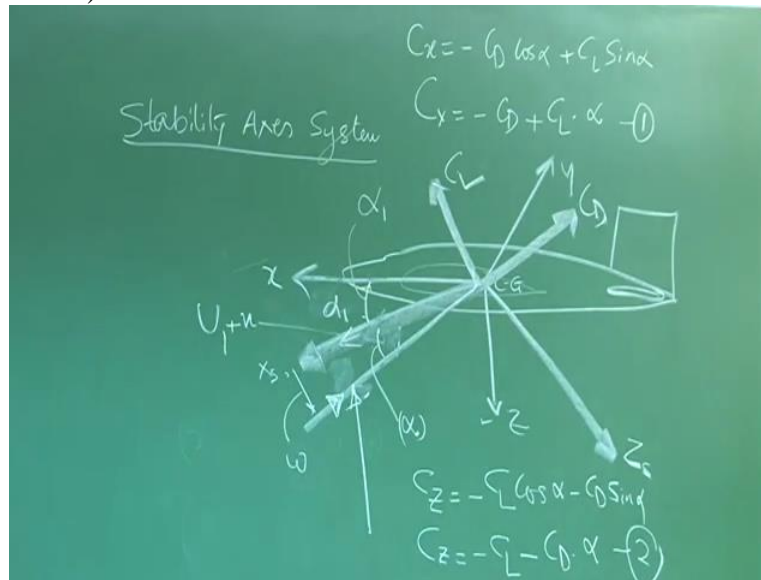 Cx = - CD Cosα + CL Sinα
Cx = - CD + CL · α - ①
Stability Axes System
CL
y
CD
α1
x
C.G
α1
U1+u
xs
(α)
ω
Z
Zs
Cz = - CL Cosα - CD Sinα
Cz = - CL - CD · α - ②